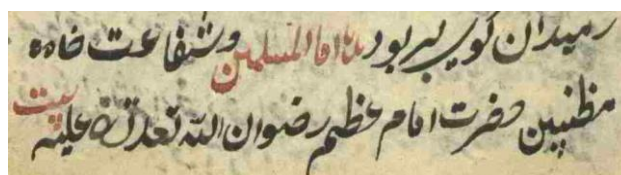 ز میدان گوی بربود امام المسلمین و شفاعت خواه
مظنبین حضرت امام عظم رضوان الله تعالی علیه بیت